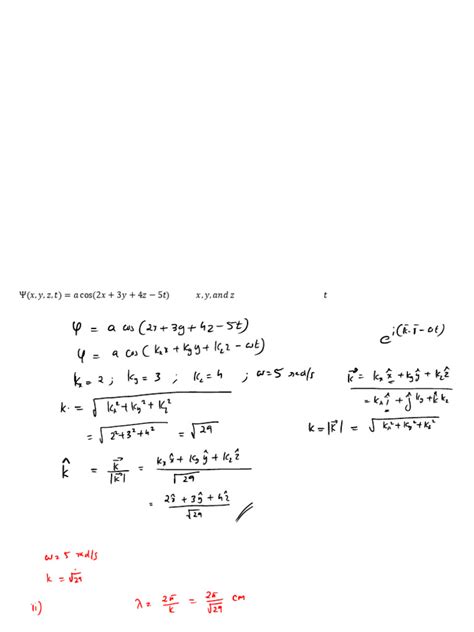 Ψ(x, y, z, t) = a cos(2x + 3y + 4z − 5t) x, y, and z t
φ = a cos (2x + 3y + 4z − 5t)
e^{i(k̄·r̄ − ωt)}
φ = a cos (kₓx + k_y y + k_z z − ωt)
kₓ = 2 ; k_y = 3 ; k_z = 4 ; ω = 5 rad/s
k⃗ = kₓ x̂ + k_y ŷ + k_z ẑ
k = √(kₓ² + k_y² + k_z²)
= kₓ î + ĵ k_y + k̂ k_z
= √(2² + 3² + 4²) = √29
k = |k⃗| = √(kₓ² + k_y² + k_z²)
k̂ = k⃗/|k⃗| = (kₓ x̂ + k_y ŷ + k_z ẑ)/√29
= (2x̂ + 3ŷ + 4ẑ)/√29
ω = 5 rad/s
k = √29
ii) λ = 2π/k = 2π/√29 cm